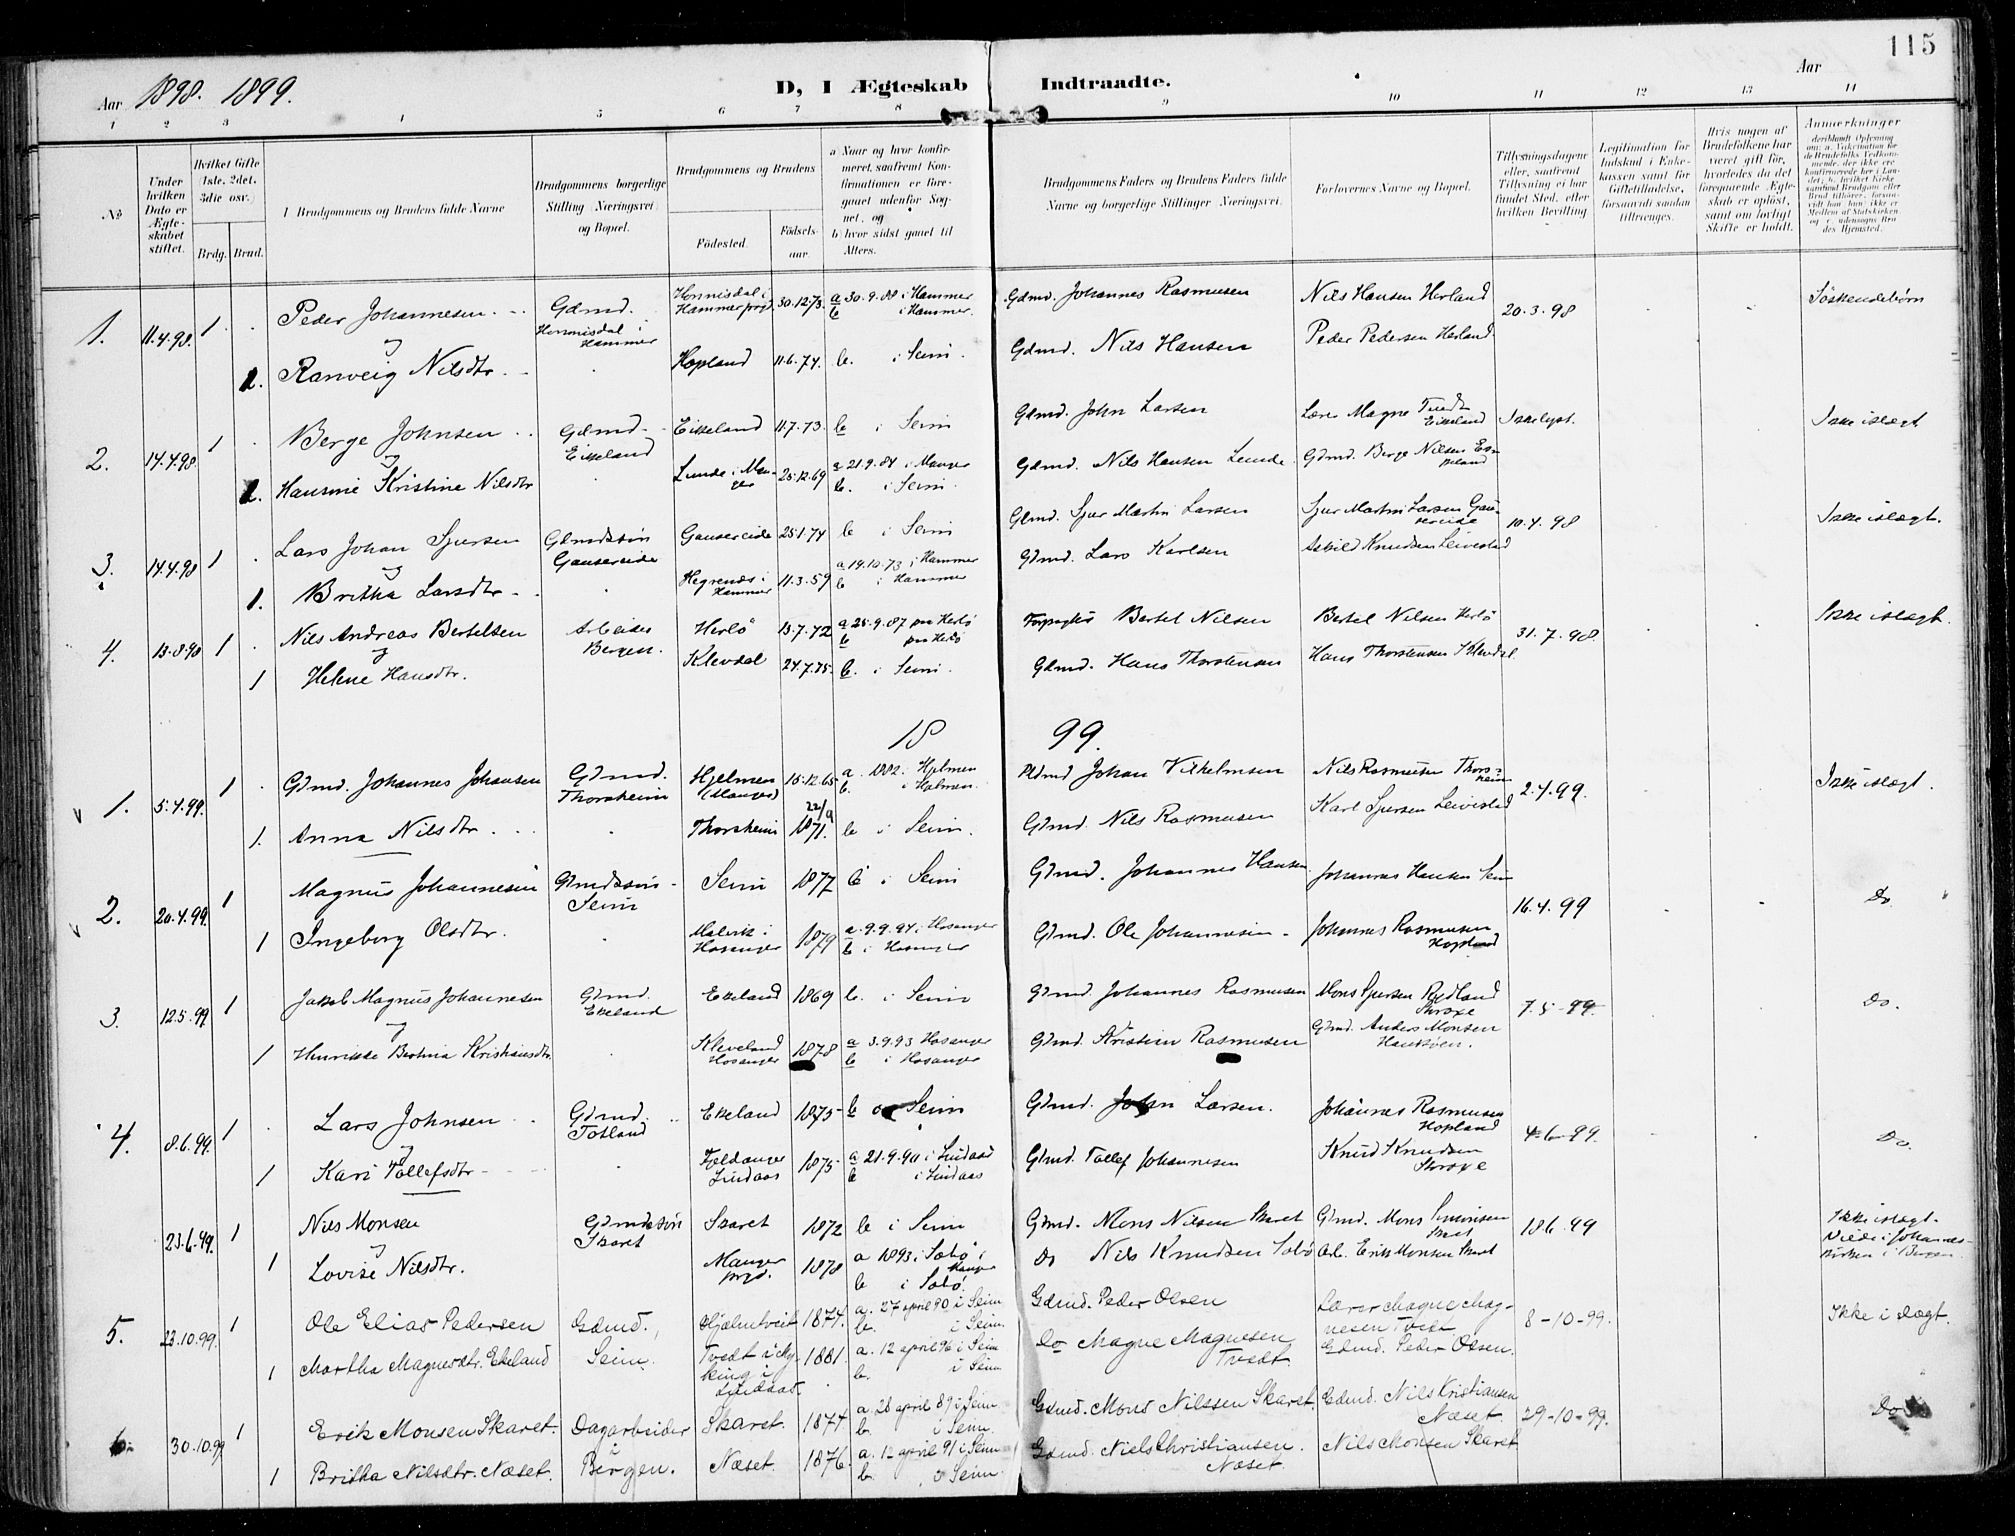 115
Aar 1898. 1899.
D, I Ægteskab Indtraadte.
Aar
1 2 3 4 5 6 7 8 9 10 11 12 13 14
No
Under hvilken Dato er Ægteskabet stiftet.
Hvilket Gifte (1ste, 2det, 3die osv.)
Brdg. Brud.
Brudgommens og Brudens fulde Navne
Brudgommens borgerlige Stilling (Næringsvei) og Bopæl.
Brudgommens og Brudens
Födested. Födselsaar.
a) Naar og hvor konfirmeret, saafremt Konfirmationen er foregaaet udenfor Sognet, og
b) hvor sidst gaaet til Alters.
Brudgommens Faders og Brudens Faders fulde Navne og borgerlige Stillinger (Næringsvei).
Forlovernes Navne og Bopæl.
Tillysningsdagene eller, saafremt Tillysning ei har fundet Sted, efter hvilken Bevilling
Legitimation for Indskud i Enkekassen samt for Giftetilladelse, forsaavidt saadan tiltrænges.
Hvis nogen af Brudefolkene har været gift før, hvorledes da det foregaaende Ægteskab er opløst, samt om lovligt Skifte er holdt.
Anmærkninger
1. 11.4.98. 1 Peder Johannesen Gdmd. Hennisdal i Hammer Hennisdal i Hammer prgd. 30.12.73. a 30.9.88 i Hammer b i Hammer. Gdmd. Johannes Rasmusen Nils Hansen Herland 20-3-98 Söskendebörn
og
1. Ranveig Nilsdtr. Hopland 11.6.74. b. i Seim. Gdmd. Nils Hansen Peder Pedersen Herland
2. 14.4.98. 1 Berge Johnsen Gdmd. Eikeland Eikeland 11.7.73. b i Seim Gdmd. John Larsen Lærer Magne Tvedt Eikeland Ikke lyst. Ikke i slægt
og
1. Hansine Kristine Nilsdtr Lunde i Manger 25.12.69 a 21.9.84 i Manger b. i Seim. Gdmd. Nils Hansen Lunde. Gdmd. Berge Nilsen
3. 14.4.98 1 Lars Johan Sjursen Gdmdssön Gausereide Gausereide 25.1.74 b i Seim Gdmd. Sjur Martin Larsen Sjur Martin Larsen Gausereide 10.4.98 Ikke i slægt.
og
1. Britha Larsdtr. Hegrenæs i Hammer 11.3.59 a 19.10.73 i Hammer b i Hammer Gdmd. Lars Karlsen Asbild Knudsen Leivestad
4. 13.8.98 1 Nils Andreas Bertelsen Arbeider Bergen. Herlö 13.7.72 a 25.9.87 paa Herlö b paa Herlö Forpagter Bertel Nilsen Bertel Nilsen Herlö 31.7.98 Ikke i slægt.
og
1 Helene Hansdtr. Klevdal 24.7.75. b. i Seim. Gdmd. Hans Thorstensen Hans Thorstensen Klevdal
18 99.
1. 5.4.99. 1 Gdmd. Johannes Johansen Gdmd. Thorsheim Hjelmen (Manger) 15.12.65 a. 1882. Hjelmen b. i Hjelmen. Gdmd Johan Vilhelmsen Nils Rasmusen Thorsheim 2.4.99. Ikke i slægt.
1. Anna Nilsdtr. Thorsheim 22/9 1871. b i Seim. Gdmd. Nils Rasmusen Karl Sjursen Leivestad
2. 20.4.99. 1 Magnus Johannesen Gdmdssön Seim Seim 1877 b i Seim Gdmd. Johannes Hansen Johannes Hansen Seim 16.4.99 Do.
1 Ingeborg Olsdtr. i Hosanger 1879 a. 9.9.94 i Hosanger b i Hosanger Gdmd. Ole Johannesen Johannes Rasmusen Hopland
3. 12.5.99 1 Jakob Magnus Johannesen Gdmd. Ekeland Ekeland 1869 b. i Seim Gdmd. Johannes Rasmusen Mons Sjursen Rödland 7-5-99 Do.
og
1 Henrikke Bertina Kristiansdtr. Kleveland Hosanger 1878 a 3.9.93 Hosanger b i Hosanger Gdmd. Kristian Rasmusen Gdmd. Anders Monsen
4. 8.6.99. 1 Lars Johnsen Gdmd. Totland Ekeland 1875 b Seim Gdmd. John Larsen. Johannes Rasmusen Hopland 4-6-99. Do.
og
1 Kari Tollefsdtr. Fjeldanger Lindaas 1875 a 21.9.90 i Lindaas b i Lindaas Gdmd. Tollef Johannesen Knud Knudsen
23.6.99. 1 Nils Monsen Gdmdssön Skaret Skaret 1872 b i Seim Gdmd. Mons Nilsen Skaret Gdmd. Mons Simonsen 18.6.99 Ikke i slægt. Viede i Johanneskirken i Bergen
og
1 Lovise Nilsdtr. Manger prgd. 1878 a 1893 i Sæbö i Manger b i Sæbö. Do Nils Knudsen Sæbö Arb. Erik Monsen Skaret
5. 23.10.99. 1 Ole Elias Pedersen Gdmd., Seim. Hjelmtveit 1874. a. 27 april 90 i Seim b. i Seim. Gdmd. Peder Olsen Lærer Magne Magnesen Tvedt 8-10-99. Ikke i slægt.
1 Martha Magnesdtr. Ekeland Tvedt i Myking i Lindaas 1881. a. 12 april 96 i Seim b. i Seim Do Magne Magnesen Tvedt. Gdmd. Peder Olsen.
6. 30.10.99 1 Erik Monsen Skaret. Dagarbeider i Bergen. Skaret. 1874. a. 28 april 89 i Seim b. i Seim. Gdmd. Mons Nilssen Skaret. Gdmd. Nils Kristiansen Næset. 29-10-99. Do
1 Britha Nilsdtr. Næset. Næset. 1876. a. 12 april 91 i Seim b. i Seim. Gdmd. Niels Christiansen. Næset. Nils Monsen Skaret